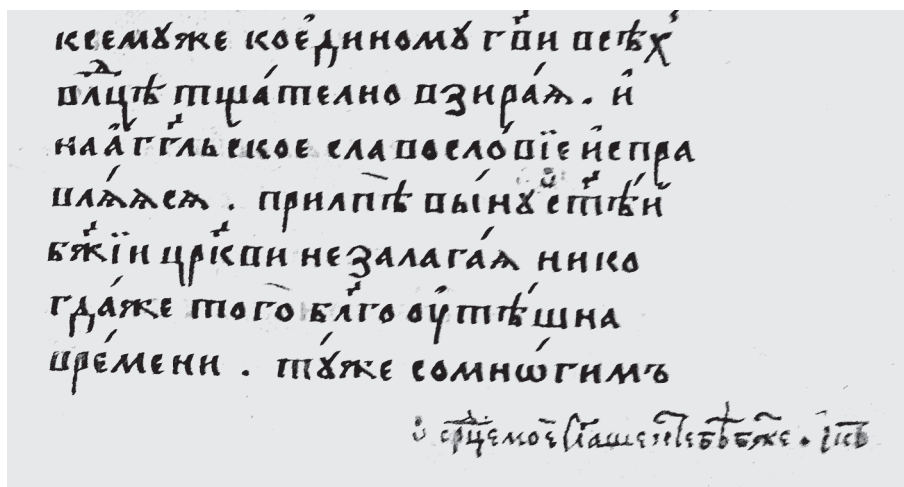 к семꙋже кое҆диномꙋ гв҃и всѣх
влⷣцѣ тща́телно взира́ѧ . и҆
на а҆́гг҃льское славосло́вїе и҆спра
влѧ́ѧсѧ . прилпѣ вы́нꙋ ст҃ѣ́и
бж҃їи цр҃кви не залага́ѧ нико
гда́же того бл҃го оу҆тѣ́шна
вре́мени . тꙋ́же со мнѡ́гимъ